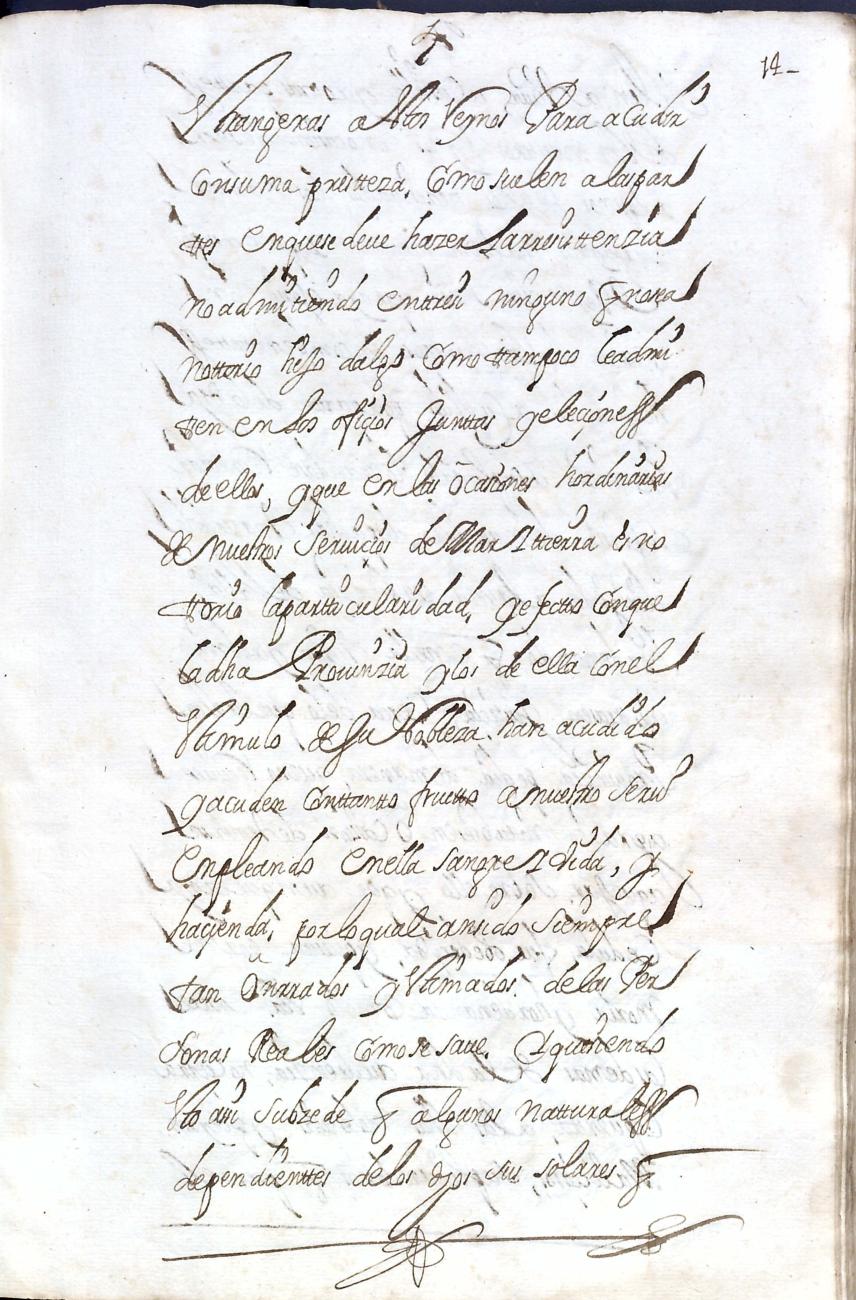 14
estrangeras a estos Reynos Para acudir
con suma presteza, como suelen a las par
ttes en que se deue hazer la rresisttenzia
no admitiendo enttre si ninguno q no sea
nottorio hijo dalgo como ttampoco le admi
tten en los ofiçios Junttas y eleçiones
de ellos, y que en las ocasiones hordinarias
de nuestros seruiçios de Mar y ttierra es no
ttorio la partticularidad, y efectto con que
la dha Prouinzia y los de ella con el
estimulo de su Nobleza han acudido
y acuden con ttantto frutto a nuestro serui
enpleando en ella sangre y vida, y
haçienda, por lo qual an sido siempre
tan Onrrados y estimados de las Per
sonas Reales como se saue. Y quiriendo
esto asi subzede q algunos natturales
dependienttes de los dhos sus solares q